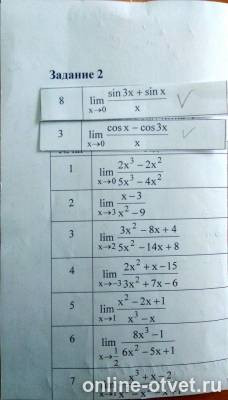 Задание 2
8 lim x→0 (sin 3x + sin x)/x
3 lim x→0 (cos x − cos 3x)/x
1 lim x→0 (2x³ − 2x²)/(5x³ − 4x²)
2 lim x→3 (x − 3)/(x² − 9)
3 lim x→2 (3x² − 8x + 4)/(5x² − 14x + 8)
4 lim x→−3 (2x² + x − 15)/(3x² + 7x − 6)
5 lim x→1 (x² − 2x + 1)/(x³ − x)
6 lim x→1/2 (8x³ − 1)/(6x² − 5x + 1)
7 x³ + x − 2
online-otvet.ru